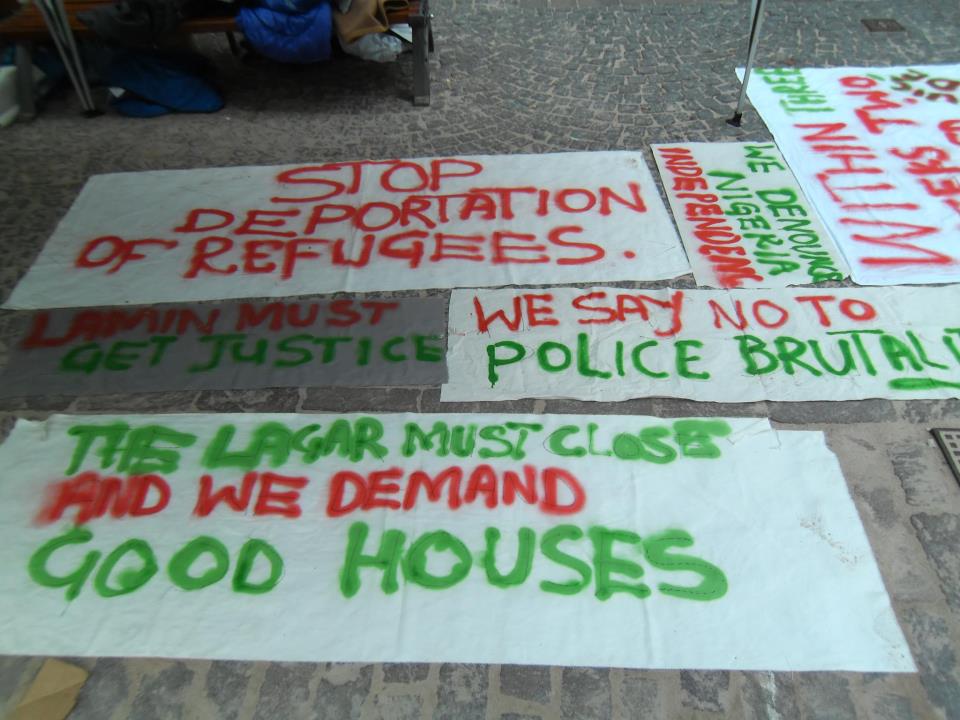 STOP
DEPORTATION
OF REFUGEES.
WE DENOUNCE
NIGERIA
WITHIN THREE
TWO
LAMIN MUST
GET JUSTICE
WE SAY NO TO
POLICE BRUTALI
THE LAGAR MUST CLOSE
AND WE DEMAND
GOOD HOUSES